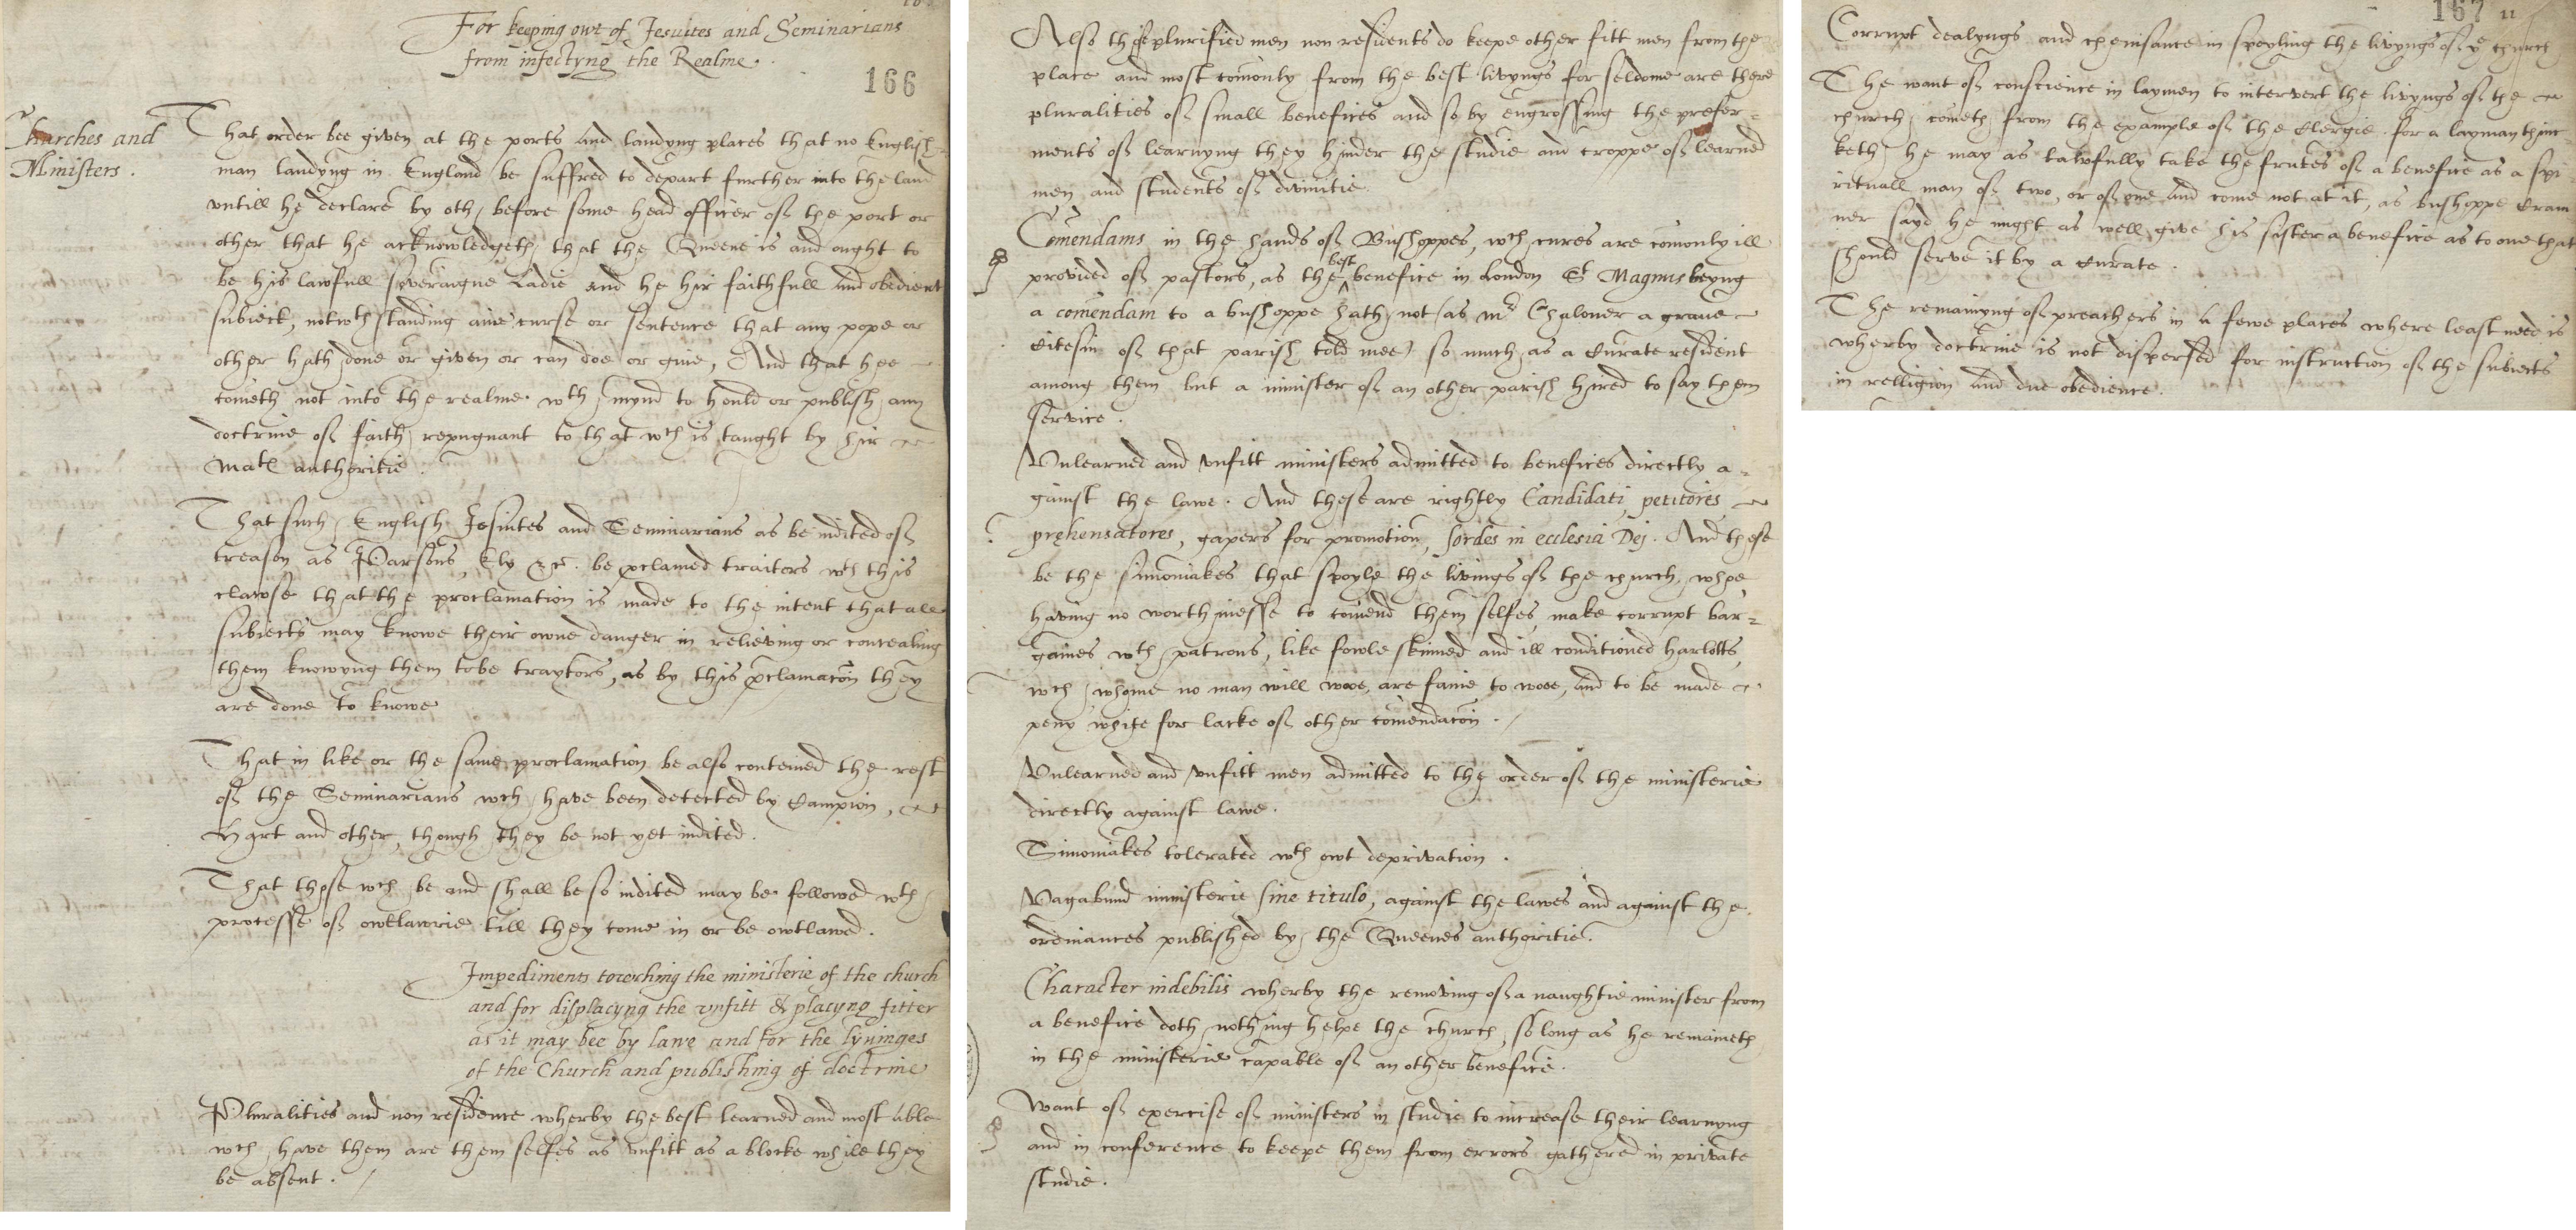 For keeping owt of Jesuites and Seminarians
from infectyng the Realme.
166
Churches and
Ministers.
That order bee given at the ports and landyng places that no English-
man landyng in England be suffred to depart further into the land
vntill he declare by oth before some head officer of the port or
other that he acknowledgeth that the Queene is and ought to
be his lawfull soveraigne Ladie and he hir faithfull and obedient
subiect, notwthstanding anie curse or sentence that any pope or
other hath done or given or can doe or giue, And that hee
cometh not into the realme wth mynd to hould or publish any
doctrine of faith repugnant to that wch is taught by hir
Matis authoritie.
That such English Jesuites and Seminarians as be indited of
treason as Parsons, Ely &c. be pclamed traitors wth this
clawse that the proclamation is made to the intent that all
subiects may knowe their owne danger in relieving or concealing
them knowyng them to be traytors, as by this pclamacon they
are done to knowe
That in like or the same proclamation be also conteined the rest
of the Seminarians wch have been detected by Campion,
Hart and other, though they be not yet indited.
That those wch be and shall be so indited may be followed wth
processe of owtlawrie till they come in or be owtlawed.
Impediments towching the ministerie of the church
and for displacyng the vnfitt & placyng fitter
as it may bee by lawe and for the lyuinges
of the Church and publishing of doctrine
Pluralities and non residence wherby the best learned and most able
wch have them are them selfes as vnfitt as a blocke while they
be absent.
Also these plurified men non residents do keepe other fitt men from the
place and most comonly from the best livyngs for seldome are there
pluralities of small benefices and so by engrossing the prefer-
ments of learnyng they hinder the studie and croppe of learned
men and students of divinitie.
Comendams in the hands of Bushoppes, wth cures are comonly ill
provided of pastors, as the best benefice in London St Magnus beyng
a comendam to a bushoppe hath not (as mr Chaloner a graue
citesin of that parish told mee) so much as a Curate resident
among them but a minister of an other parish hired to say them
service.
Vnlearned and vnfitt ministers admitted to benefices directly a-
gainst the lawe. And these are rightly Candidati, petitores
prehensatores, gapers for promotion, sordes in ecclesia Dei. And these
be the simoniakes that spoyle the livings of the church, whoe
having no worthinesse to comend them selfes, make corrupt bar-
gaines wth patrons, like fowle skinned and ill conditioned harlotts,
wth whome no man will wooe, are faine to wooe, and to be made
peny white for lacke of other comendacon.
Vnlearned and vnfitt men admitted to the order of the ministerie
directly against lawe.
Simoniakes tolerated wth owt deprivation.
Vagabund ministerie sine titulo, against the lawes and against the
ordinances published by the Queenes authoritie.
Character indebilis wherby the removing of a naughtie minister from
a benefice doth nothing helpe the church, so long as he remaineth
in the ministerie capable of an other benefice.
Want of exercise of ministers in studie to increase their learnyng
and in conference to keepe them from errors gathered in private
studie.
167
11
Corrupt dealyngs and chevisance in spoyling the livyngs of ye church
The want of conscience in laymen to intervert the livyngs of the
church, cometh from the example of the Clergie. for a layman thinc
keth he may as lawfully take the frutes of a benefice as a spi
rituall man of two, or of one and come not at it, as bushoppe Cram
ner sayd he might as well give his sister a benefice as to one that
should serve it by a Curate.
The remainyng of preachers in a fewe places where least need is
wherby doctrine is not dispersed for instruction of the subiects
in relligion and due obedience.